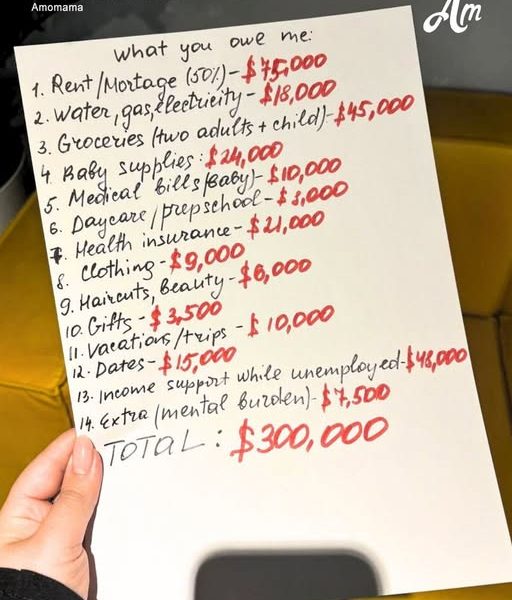 Amomama
Am
what you owe me:
1. Rent/Mortage (50%)-$75,000
2. water, gas, electricity-$18,000
3. Groceries (two adults + child)-$45,000
4. Baby supplies:$24,000
5. Medical bills(Baby)-$10,000
6. Daycare/prepschool-$3,000
7. Health insurance-$21,000
8. Clothing-$9,000
9. Haircuts, Beauty-$6,000
10. Gifts-$3,500
11. Vacations/trips-$10,000
12. Dates-$15,000
13. Income support while unemployed-$48,000
14. Extra (mental burden)-$7,500
TOTAL: $300,000